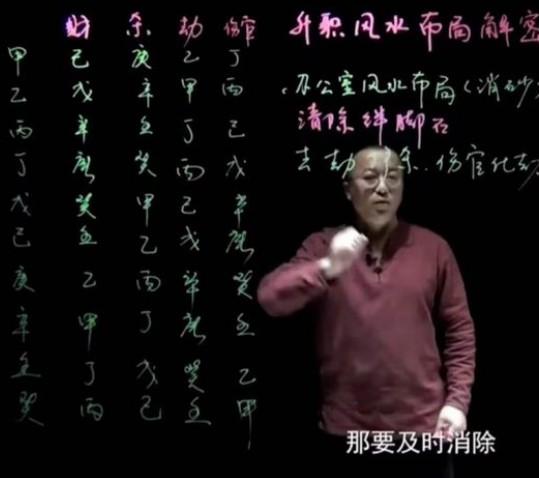 财 杀 劫 伤官
甲 己 庚 乙 丁
乙 戊 辛 甲 丙
丙 辛 壬 丁 己
丁 庚 癸 丙 戊
戊 癸 甲 己 辛
己 壬 乙 戊 庚
庚 乙 丙 辛 癸
辛 甲 丁 庚 壬
壬 丁 戊 癸 乙
癸 丙 己 壬 甲
升职风水布局解密
办公室风水布局(消砂
清除绊脚石
去劫 杀..伤官化劫
那要及时消除